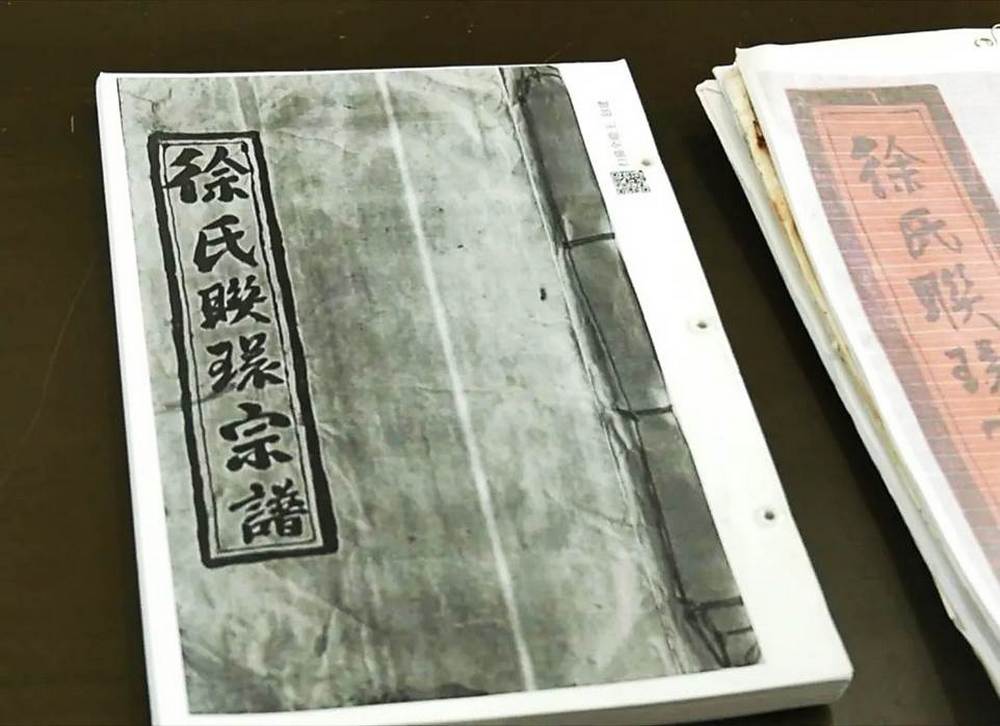 徐氏聯環宗譜
徐氏聯環